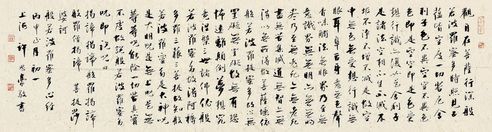 觀自在菩薩行深般
若波羅蜜多時照見五
蘊皆空度一切苦厄舍
利子色不異空空不異
色色即是空空即是色
受想行識亦復如是舍
利子是諸法空相不生不滅
不垢不淨不增不減是故空
中無色無受想行識無眼
耳鼻舌身意無色聲
香味觸法無眼界乃至無
意識界無無明亦無無明
盡乃至無老死亦無老死
盡無苦集滅道無智亦無
得以無所得故菩提薩埵依
般若波羅蜜多故心無
罣礙無罣礙故無有恐
怖遠離顛倒夢想究
竟涅槃三世諸佛依般
若波羅蜜多故得阿耨
多羅三藐三菩提故知般
若波羅蜜多是大神咒
是大明咒是無上咒是無等
等咒能除一切苦真實
不虛故說般若波羅蜜多
咒即說咒曰
揭諦揭諦 波羅揭諦
波羅僧揭諦 菩提薩
婆訶
般若波羅蜜多心經
丙申 月初一
上海 許 亭敬書